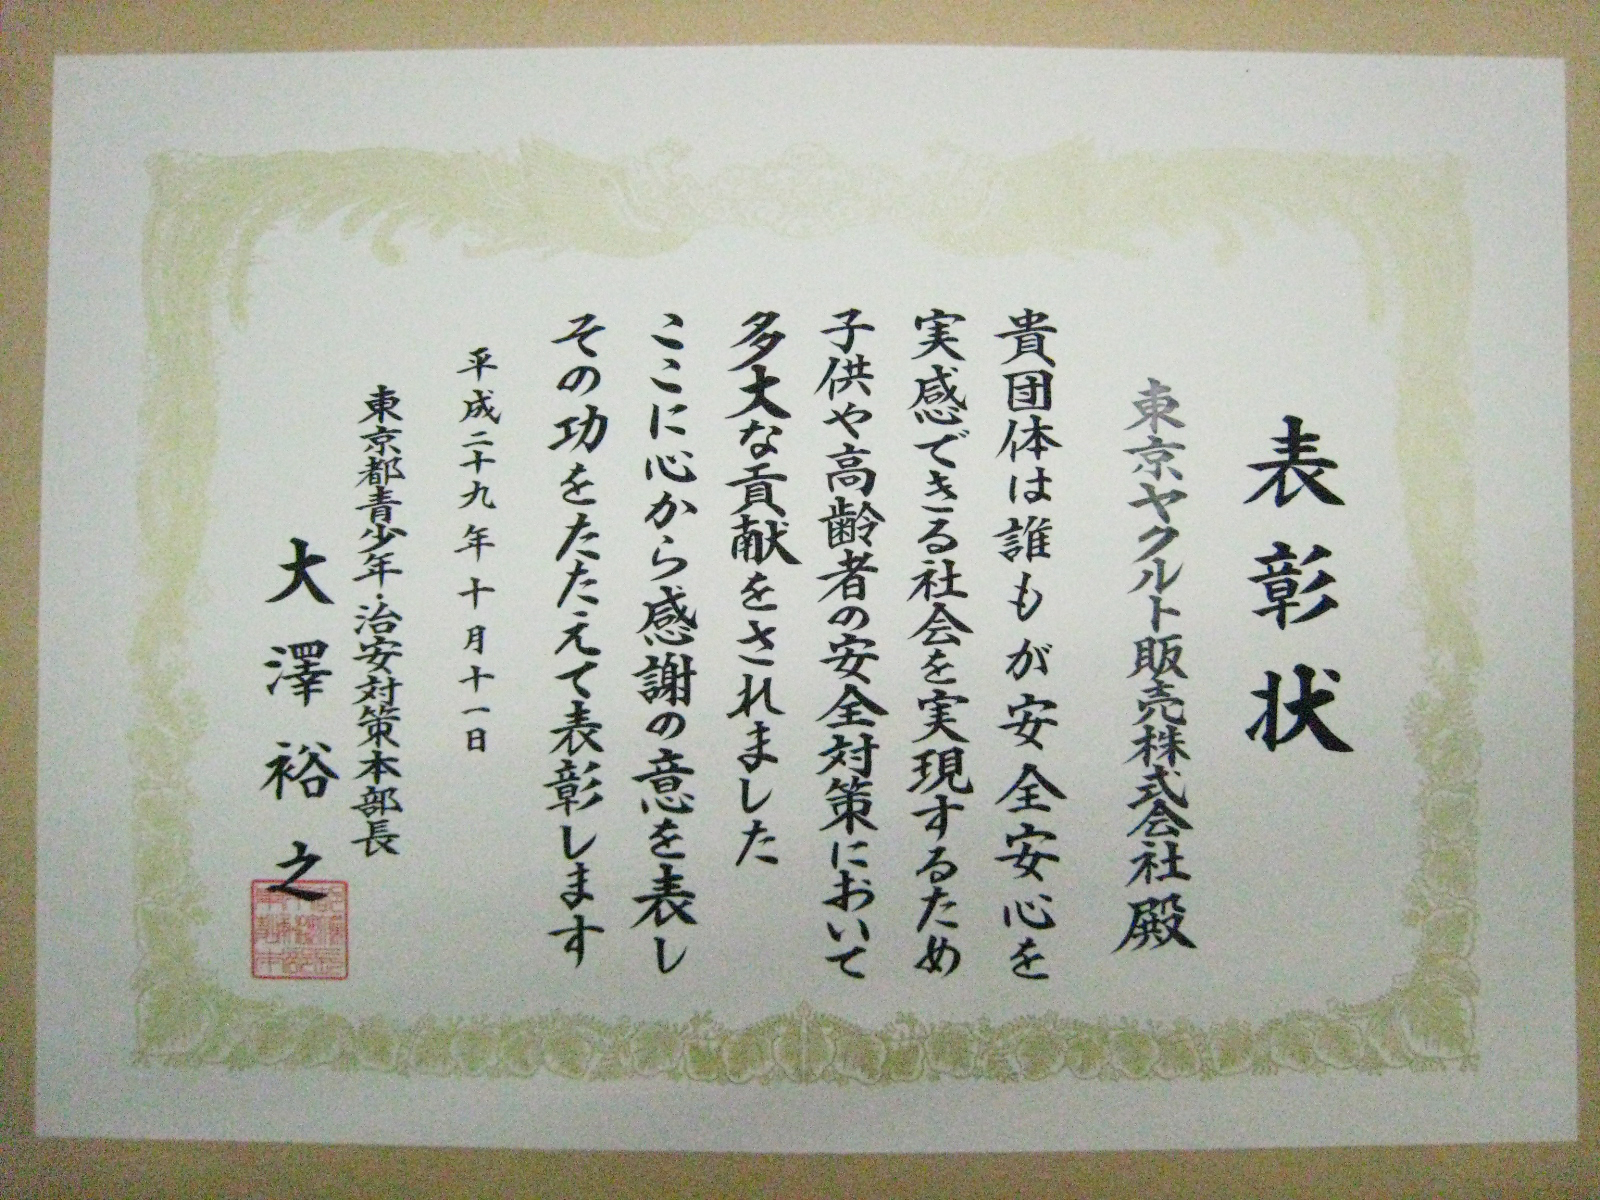 表彰状
東京ヤクルト販売株式会社殿
貴団体は誰もが安全安心を
実感できる社会を実現するため
子供や高齢者の安全対策において
多大な貢献をされました
ここに心から感謝の意を表し
その功をたたえて表彰します
平成二十九年十月十一日
東京都青少年・治安対策本部長
大澤裕之